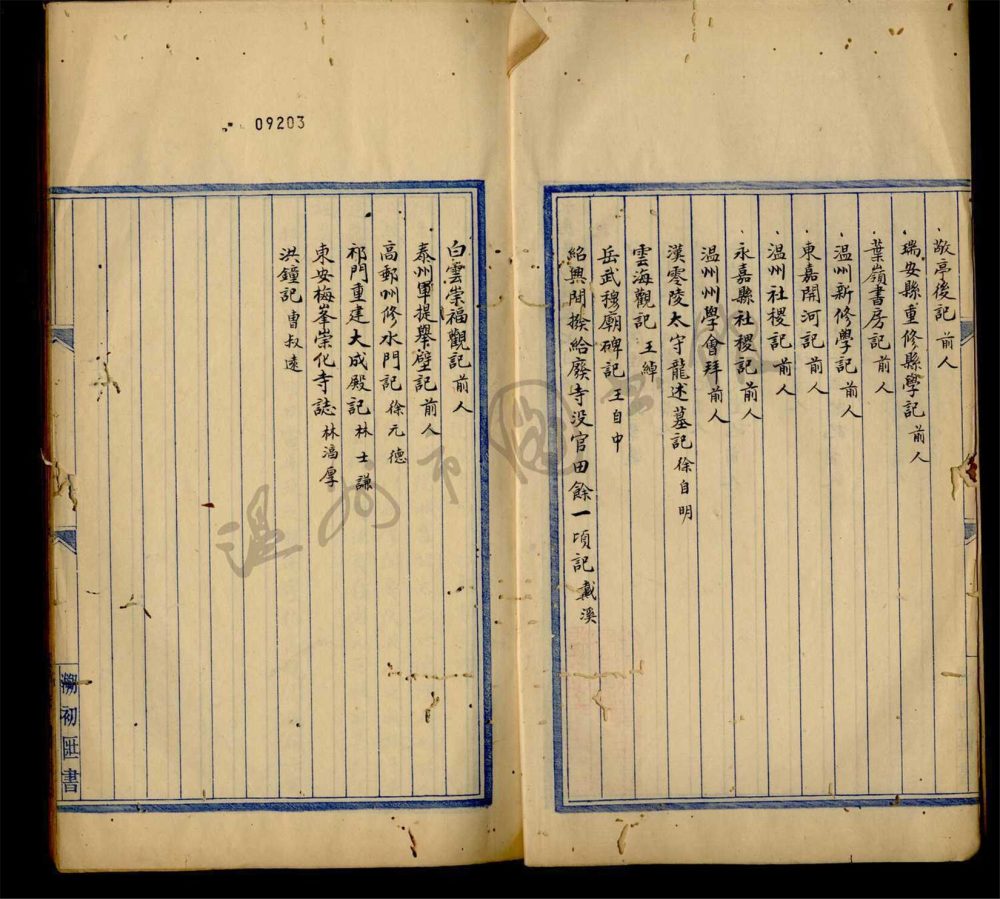 敬亭後記 前人
瑞安縣重修縣學記 前人
葉嶺書房記 前人
温州新修學記 前人
東嘉開河記 前人
温州社稷記 前人
永嘉縣社稷記 前人
温州州學會拜 前人
漢零陵太守龍述墓記 徐自明
雲海觀記 王綽
岳武穆廟碑記 王自中
紹興間撥給廢寺没官田餘一項記 戴溪
09203
白雲崇福觀記 前人
泰州軍提舉壁記 前人
高郵州修水門記 徐元德
祁門重建大成殿記 林士謙
東安梅峯崇化寺誌 林滆厚
洪鐘記 曹叔遠
初匨書
温州市圖書館